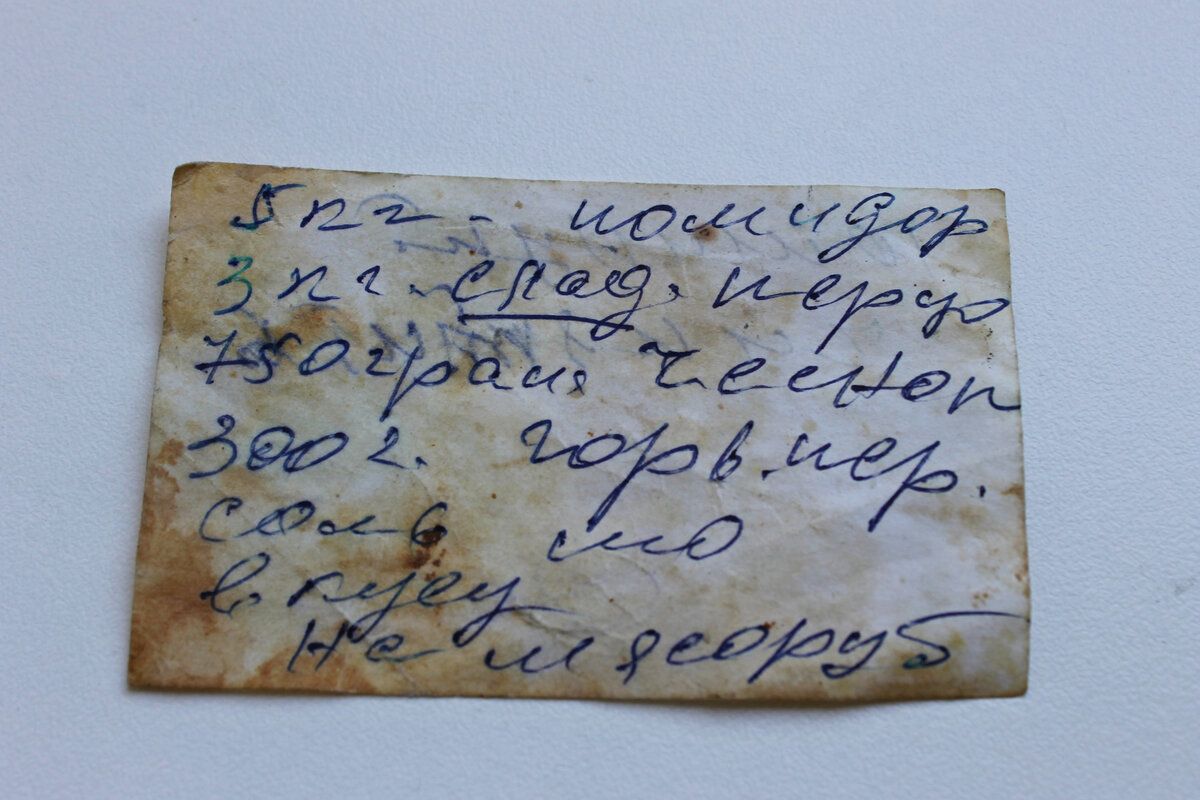 5 кг. помидор
3 кг. слад. перцр
750 грам. Чеснок
300 г. горь. пер.
соль по
вкусу
на мясоруб